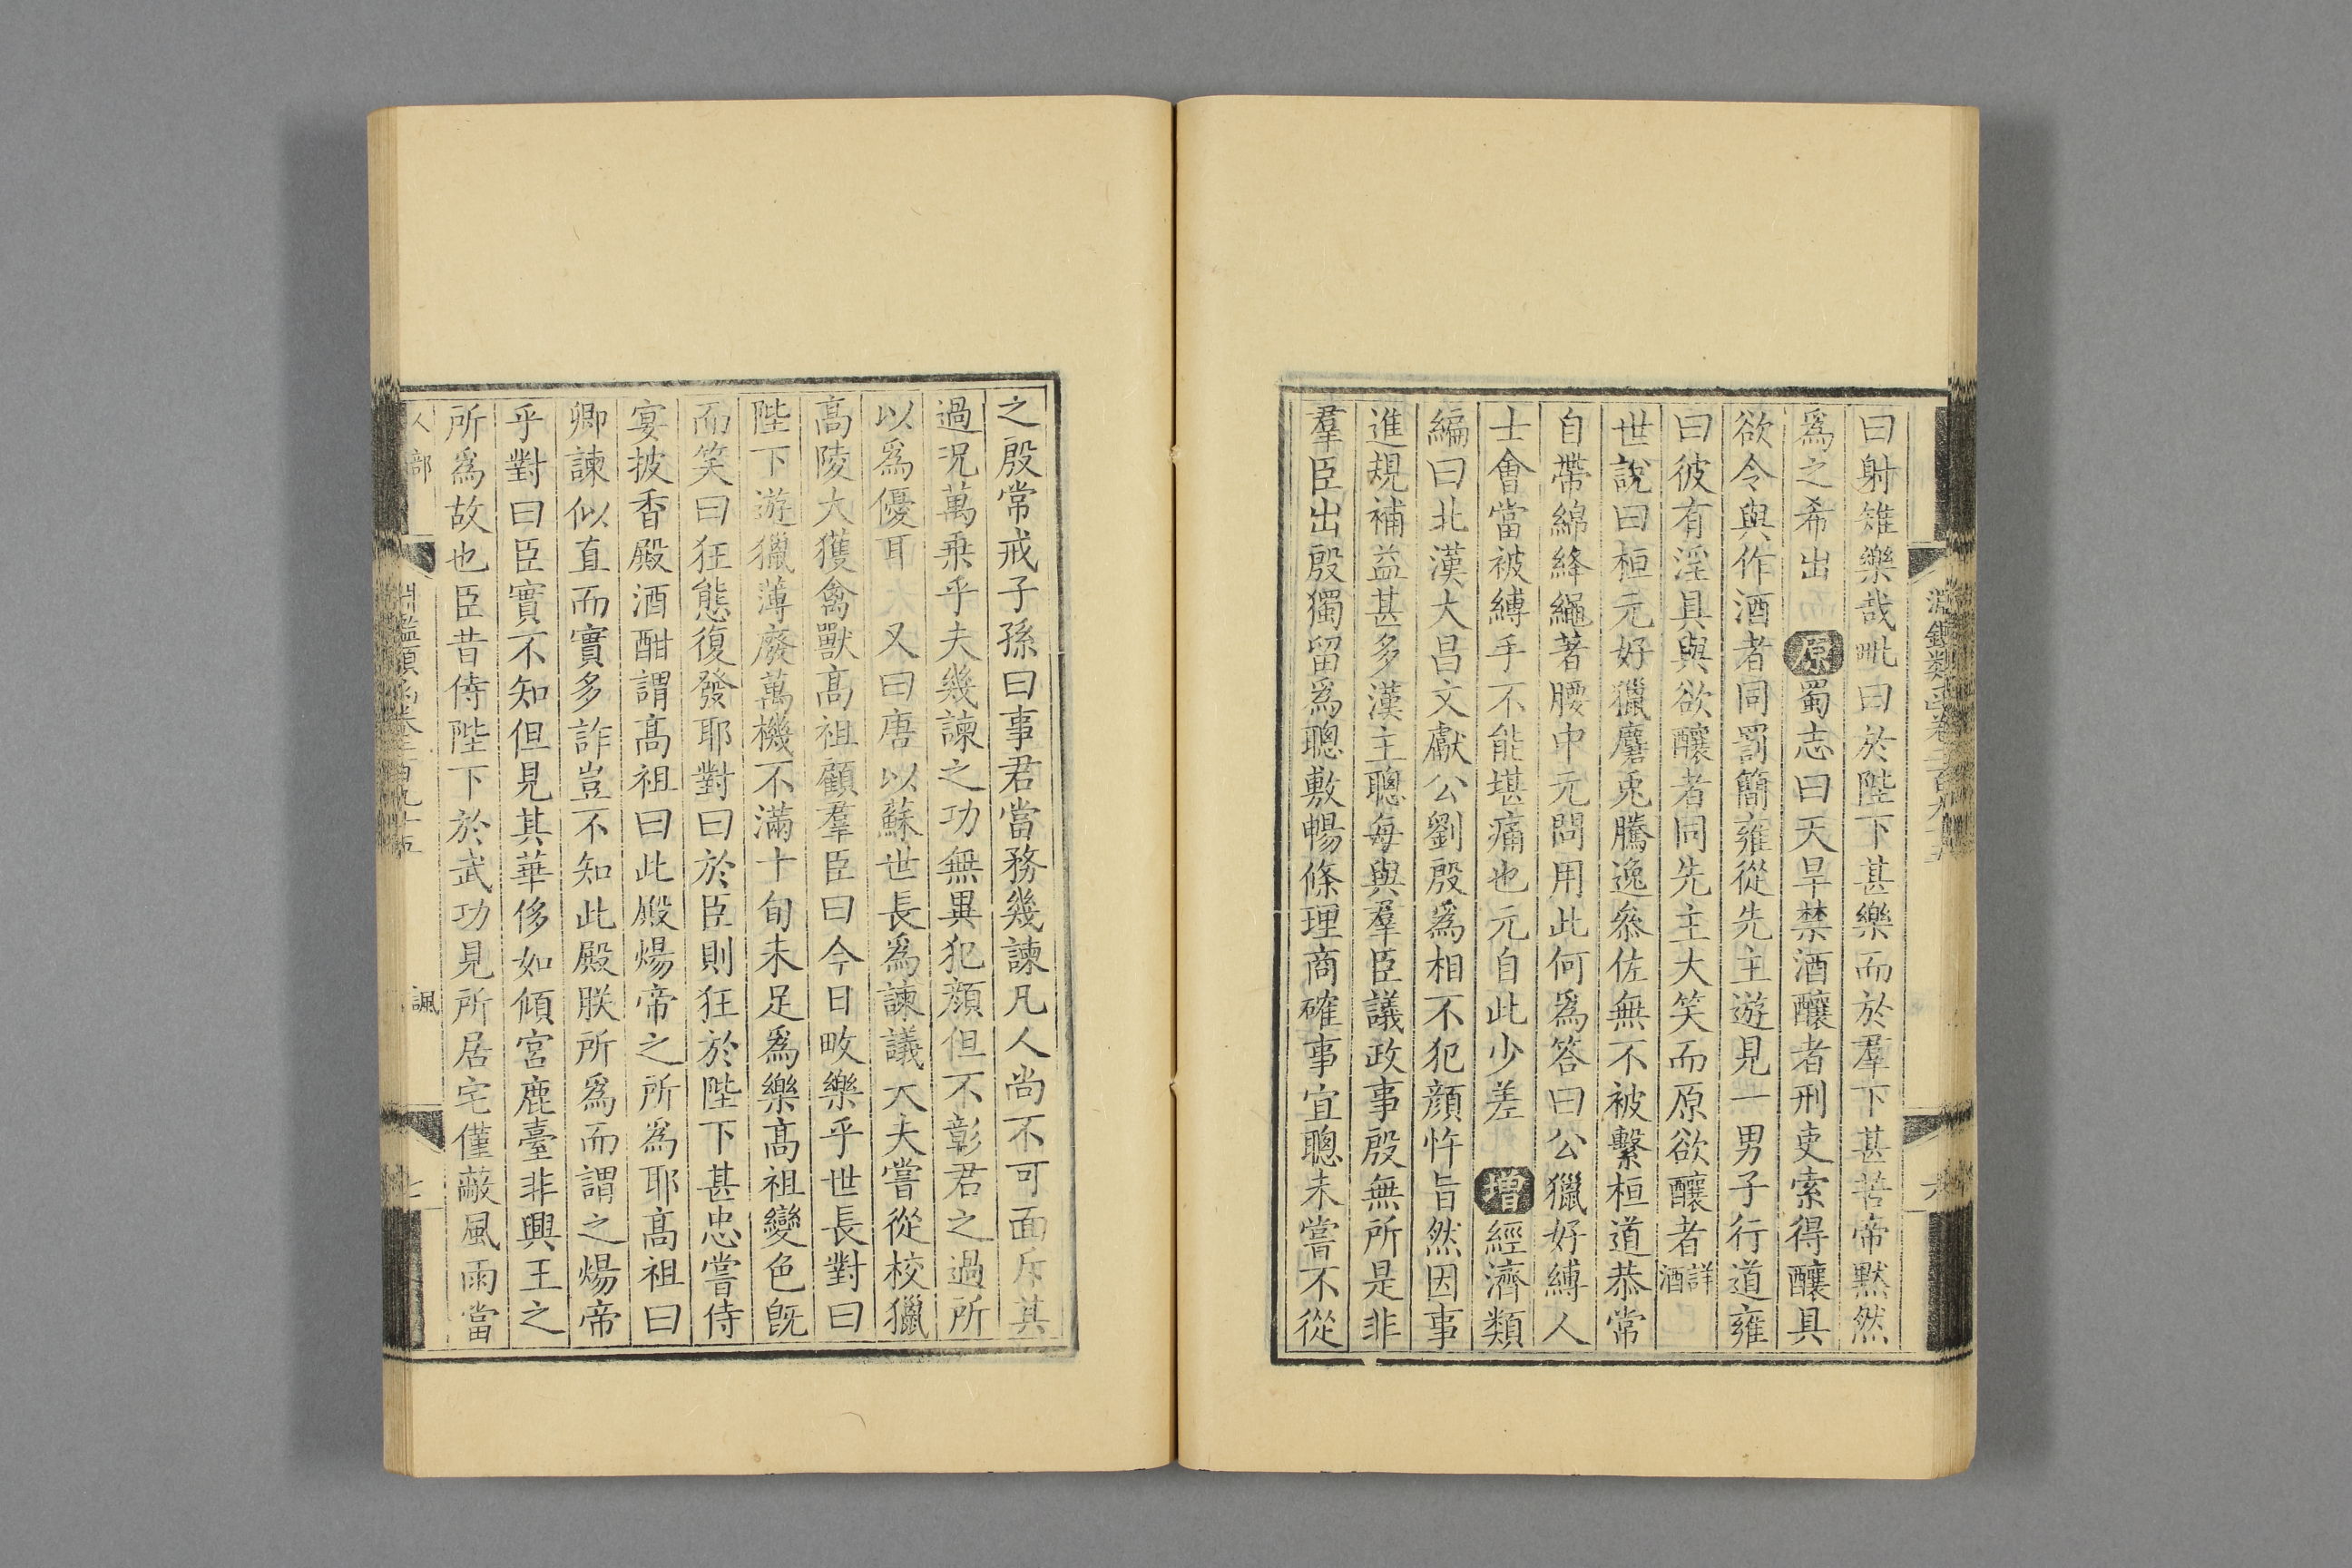 曰射雉樂哉毗曰於陛下甚樂而於羣下甚苦帝默然
爲之希出 原蜀志曰天旱禁酒釀者刑吏索得釀具
欲令與作酒者同罰簡雍從先主遊見一男子行道雍
曰彼有淫具與欲釀者同先主大笑而原欲釀者詳酒
世說曰桓元好獵麏兎騰逸叅佐無不被繫桓道恭常
自帶綿絳繩著腰中元問用此何爲答曰公獵好縛人
士會當被縛手不能堪痛也元自此少差 增經濟類
編曰北漢大昌文獻公劉殷爲相不犯顔忤旨然因事
進規補益甚多漢主聰每與羣臣議政事殷無所是非
羣臣出殷獨留爲聰敷暢條理商確事宜聰未嘗不從
之殷常戒子孫曰事君當務幾諫凡人尚不可面斥其
過况萬乘乎夫幾諫之功無異犯顔但不彰君之過所
以爲優耳 又曰唐以蘇世長爲諫議大夫嘗從校獵
高陵大獲禽獸高祖顧羣臣曰今日畋樂乎世長對曰
陛下遊獵薄廢萬機不滿十旬未足爲樂高祖變色旣
而笑曰狂態復發耶對曰於臣則狂於陛下甚忠嘗侍
宴披香殿酒酣謂高祖曰此殿煬帝之所爲耶高祖曰
卿諫似直而實多詐豈不知此殿朕所爲而謂之煬帝
乎對曰臣實不知但見其華侈如傾宮鹿臺非興王之
所爲故也臣昔侍陛下於武功見所居宅僅蔽風雨當
人部
諷